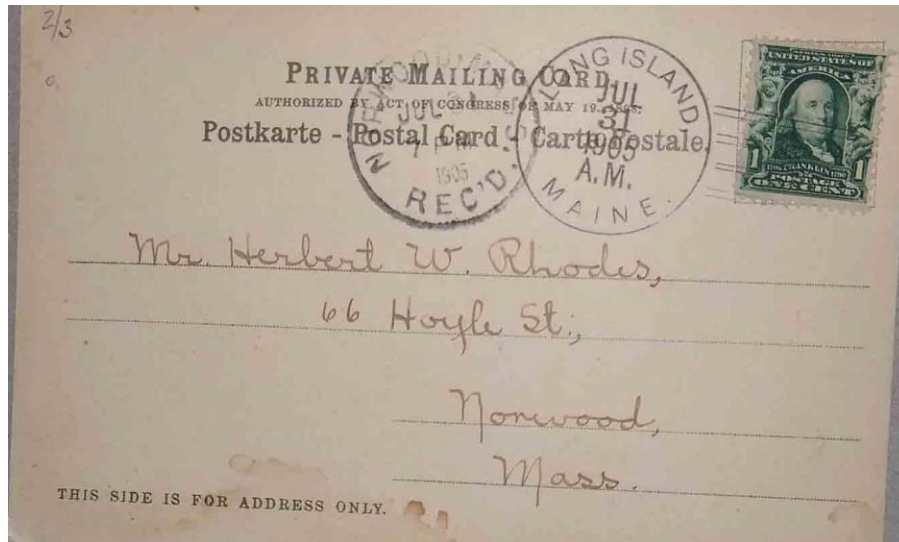 2/3
PRIVATE MAILING CARD
AUTHORIZED BY ACT OF CONGRESS OF MAY 19, 1898.
Postkarte - Postal Card - Carte Postale.
NORWOOD, MASS.
JUL 31
7 PM
1905
REC'D.
LONG ISLAND
JUL
31
1905
A.M.
MAINE.
SERIES 1902
UNITED STATES OF
AMERICA
1706 FRANKLIN 1790
1 POSTAGE 1
ONE CENT
Mr. Herbert W. Rhodes,
66 Hoyle St.,
Norwood,
Mass.
THIS SIDE IS FOR ADDRESS ONLY.